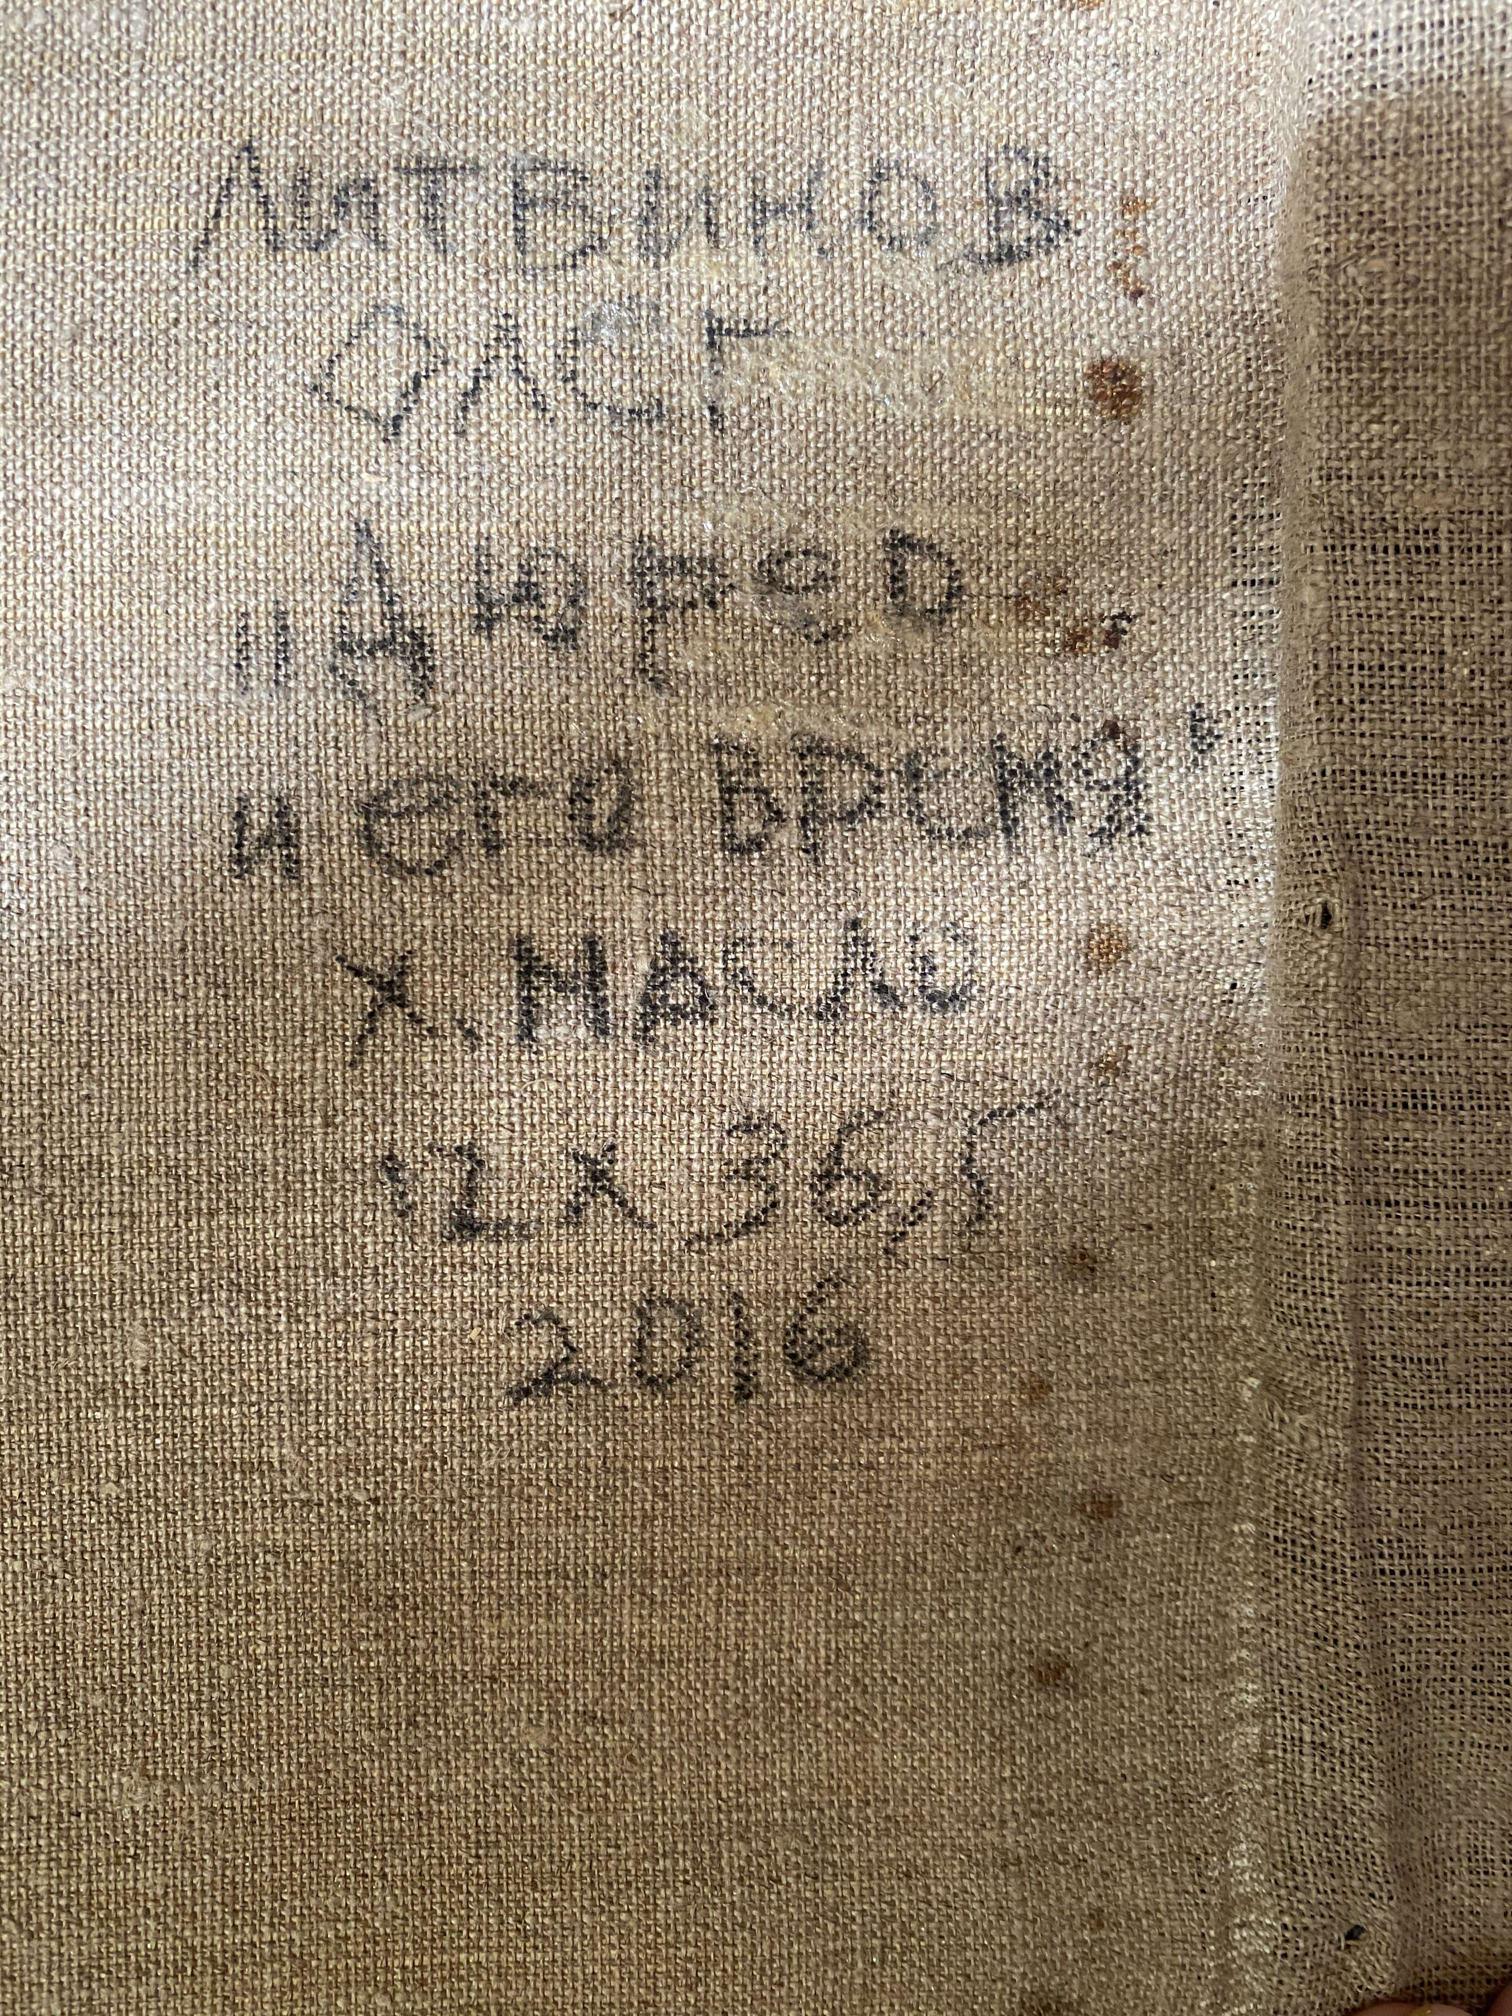 Литвинов
Олег
"Дюрер
и его время"
х. масло
12 x 36,5
2016